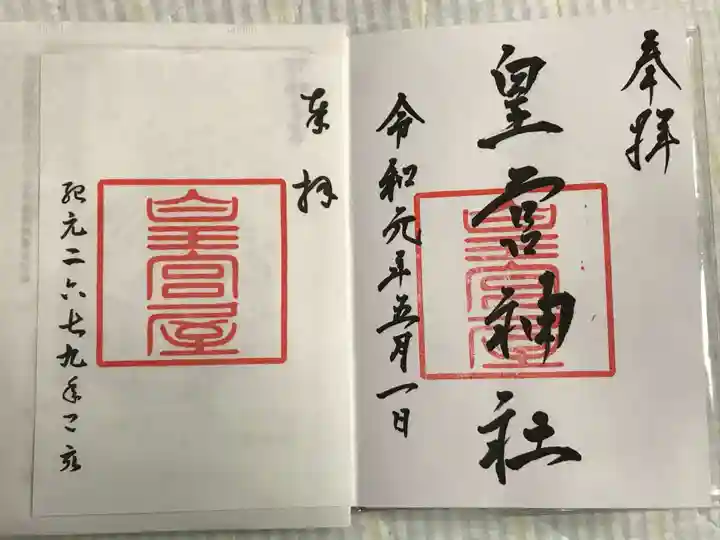 奉拝
皇宮神社
令和元年五月一日
皇宮屋
奉拝
皇宮屋
紀元二六七九年